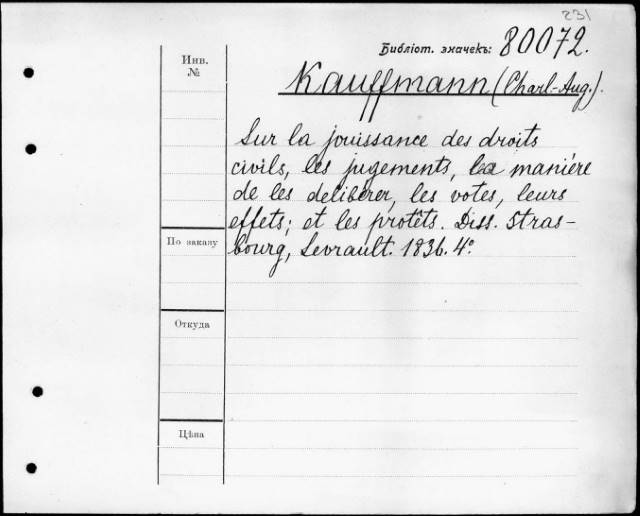 231
Библіот. значекъ: 80072.
Инв.
№
Kauffmann (Charl.-Aug.).
Sur la jouissance des droits
civils, les jugements, la maniére
de les deliberer, les votes, leurs
effets; et les protêts. Diss. Stras-
По заказу
bourg, Levrault. 1836. 4º
Откуда
Цѣна